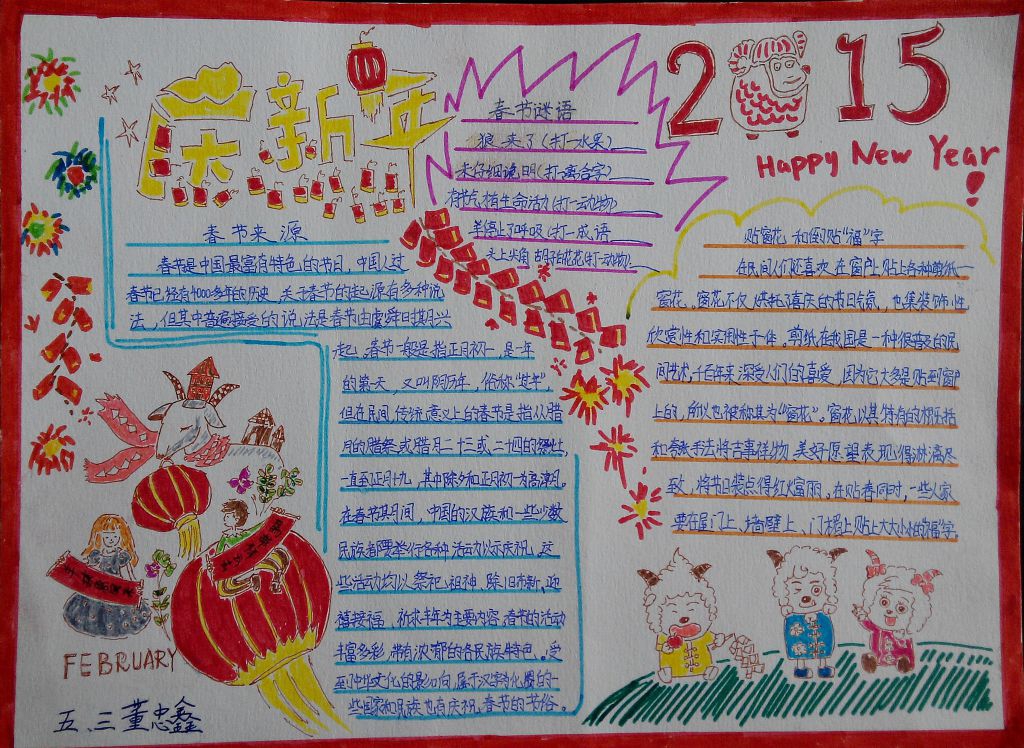 庆新年
2015
Happy New Year!
春节谜语
狼来了(打一水果)
未仔细说明(打一离合字)
存节气植生命活力(打一动物)
羊停止了呼吸(打一成语
头上尖角 胡子白花花(打一动物)
春节来源
春节是中国最富有特色的节日，中国人过
春节已经有4000多年的历史，关于春节的起源有多种说
法，但其中普遍接受的说法是春节由虞舜日摸月兴
起。春节一般是指正月初一，是一年
的第一天，又叫阴历年，俗称"过年"，
但在民间，传统意义上的春节是指从腊
月的腊祭或腊月二十三或二十四的祭灶，
一直至正月十九，其中除夕和正月初一为高潮。
在春节其月间，中国的汉族和一些少数
民族都要举行各种活动以示庆祝，这
些活动均以祭祀祖神、除旧布新、迎
禧接福、祈求丰年为主要内容，春节的活动
丰富多彩，带有浓郁的各民族特色。受
到中华文化的影响，属于汉字文化圈的一
些国家和民族也有庆祝春节的节俗。
贴窗花 和倒贴"福"字
在民间人们还喜欢在窗户上贴上各种剪纸一
窗花。窗花不仅烘托了喜庆的节日气氛，也集装饰性
欣赏性和实用性于一体。剪纸在我国是一种很普及的民
间艺术，千百年来深受人们的喜爱，因为它大多是贴到窗户
上的，所以也被称其为"窗花"。窗花以其特有的概括
和夸张手法将吉事祥物、美好愿望表现得淋漓尽
致，将节日装点得红火富丽，在贴春同时，一些人家
要在屋门上、墙壁上、门楣上贴上大大小小的"福"字。
FEBRUARY
五.三董忠鑫